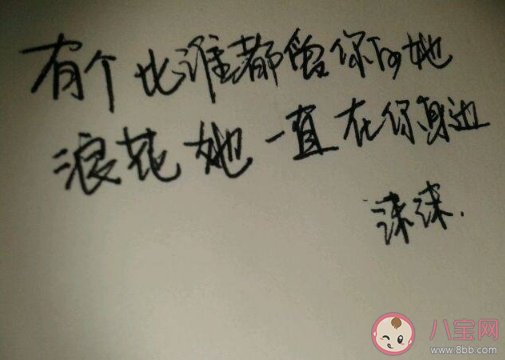 有个比谁都你的她
浪花她一直在你身边
沫沫.
八宝网
www.8bb.com